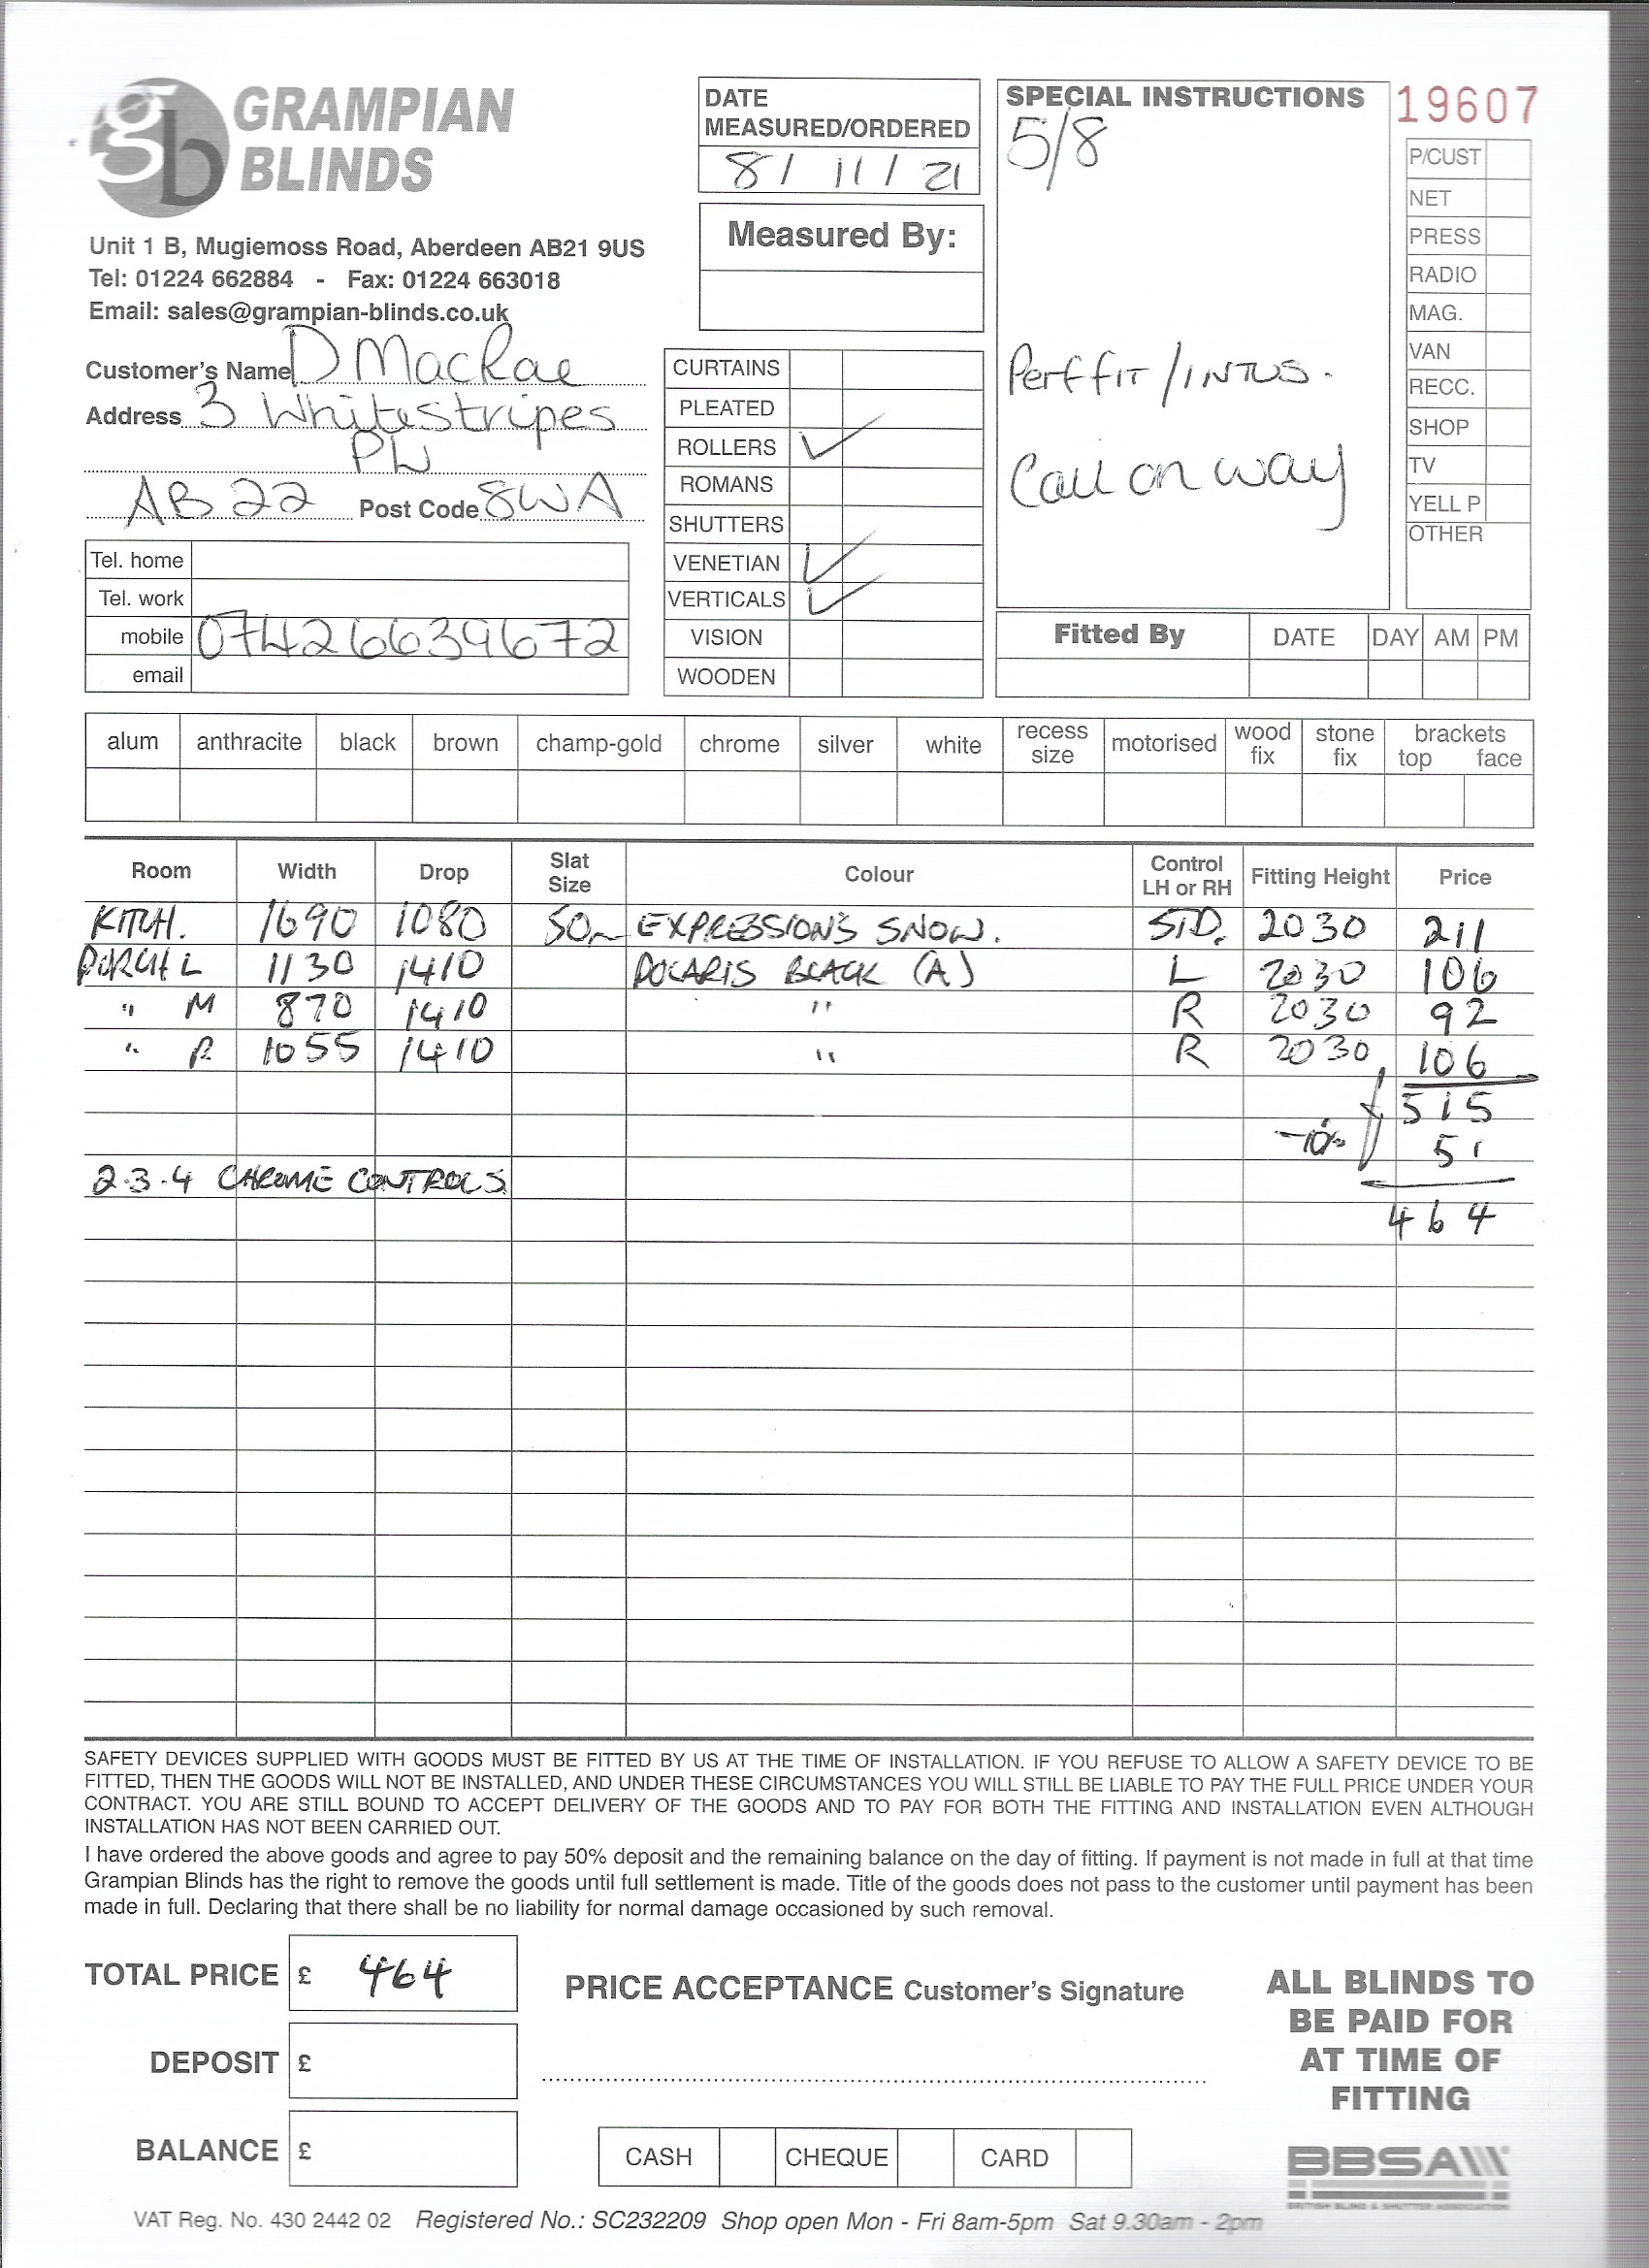 GRAMPIAN
BLINDS
Unit 1 B, Mugiemoss Road, Aberdeen AB21 9US
Tel: 01224 662884 - Fax: 01224 663018
Email: sales@grampian-blinds.co.uk
Customer's Name D MacRae
Address 3 Whitestripes
Pl
AB22 Post Code 8WA
Tel. home
Tel. work
mobile 07426639672
email
DATE
MEASURED/ORDERED
8/11/21
Measured By:
CURTAINS
PLEATED
ROLLERS ✓
ROMANS
SHUTTERS
VENETIAN ✓
VERTICALS ✓
VISION
WOODEN
SPECIAL INSTRUCTIONS
5/8
Perf fit/INTUS.
Call on way
19607
P/CUST
NET
PRESS
RADIO
MAG.
VAN
RECC.
SHOP
TV
YELL P
OTHER
Fitted By DATE DAY AM PM
alum anthracite black brown champ-gold chrome silver white recess size motorised wood fix stone fix brackets top face
Room Width Drop Slat Size Colour Control LH or RH Fitting Height Price
KITCH. 1690 1080 50 EXPRESSIONS SNOW. STD. 2030 211
PORCH L 1130 1410 POLARIS BLACK (A) L 2030 106
" M 870 1410 " R 2030 92
" R 1055 1410 " R 2030 106
515
-10% 51
2.3.4 CHROME CONTROLS
464
SAFETY DEVICES SUPPLIED WITH GOODS MUST BE FITTED BY US AT THE TIME OF INSTALLATION. IF YOU REFUSE TO ALLOW A SAFETY DEVICE TO BE
FITTED, THEN THE GOODS WILL NOT BE INSTALLED, AND UNDER THESE CIRCUMSTANCES YOU WILL STILL BE LIABLE TO PAY THE FULL PRICE UNDER YOUR
CONTRACT. YOU ARE STILL BOUND TO ACCEPT DELIVERY OF THE GOODS AND TO PAY FOR BOTH THE FITTING AND INSTALLATION EVEN ALTHOUGH
INSTALLATION HAS NOT BEEN CARRIED OUT.
I have ordered the above goods and agree to pay 50% deposit and the remaining balance on the day of fitting. If payment is not made in full at that time
Grampian Blinds has the right to remove the goods until full settlement is made. Title of the goods does not pass to the customer until payment has been
made in full. Declaring that there shall be no liability for normal damage occasioned by such removal.
TOTAL PRICE £ 464
DEPOSIT £
BALANCE £
PRICE ACCEPTANCE Customer's Signature
CASH CHEQUE CARD
ALL BLINDS TO
BE PAID FOR
AT TIME OF
FITTING
BBSA
BRITISH BLIND & SHUTTER ASSOCIATION
VAT Reg. No. 430 2442 02 Registered No.: SC232209 Shop open Mon - Fri 8am-5pm Sat 9.30am - 2pm